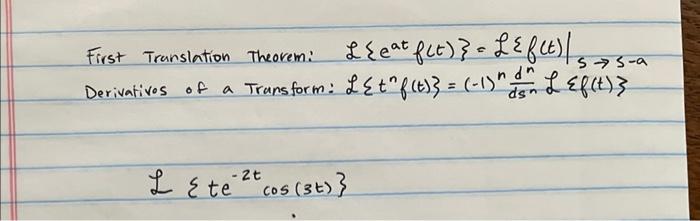 First Translation Theorem: ℒ{e^{at} f(t)} = ℒ{f(t)}|_{s→s-a}
Derivatives of a Transform: ℒ{t^n f(t)} = (-1)^n d^n/ds^n ℒ{f(t)}
ℒ{te^{-2t} cos(3t)}